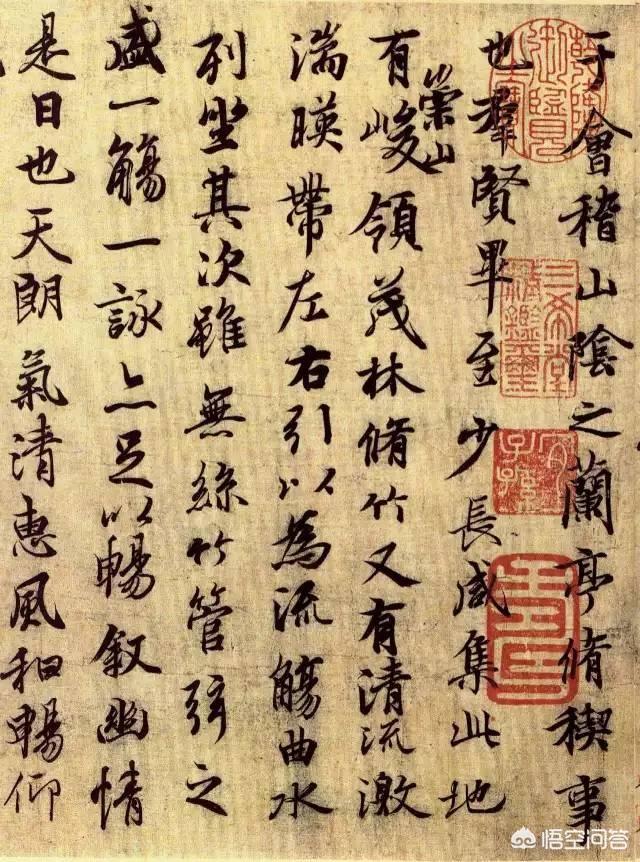 于會稽山陰之蘭亭脩稧事
也羣賢畢至少長咸集此地
有崇山峻領茂林脩竹又有清流激
湍暎帶左右引以為流觴曲水
列坐其次雖無絲竹管弦之
盛一觴一詠亦足以暢叙幽情
是日也天朗氣清惠風和暢仰
乾隆御覽之寶
三希堂精鑑璽
宜子孫
悟空问答